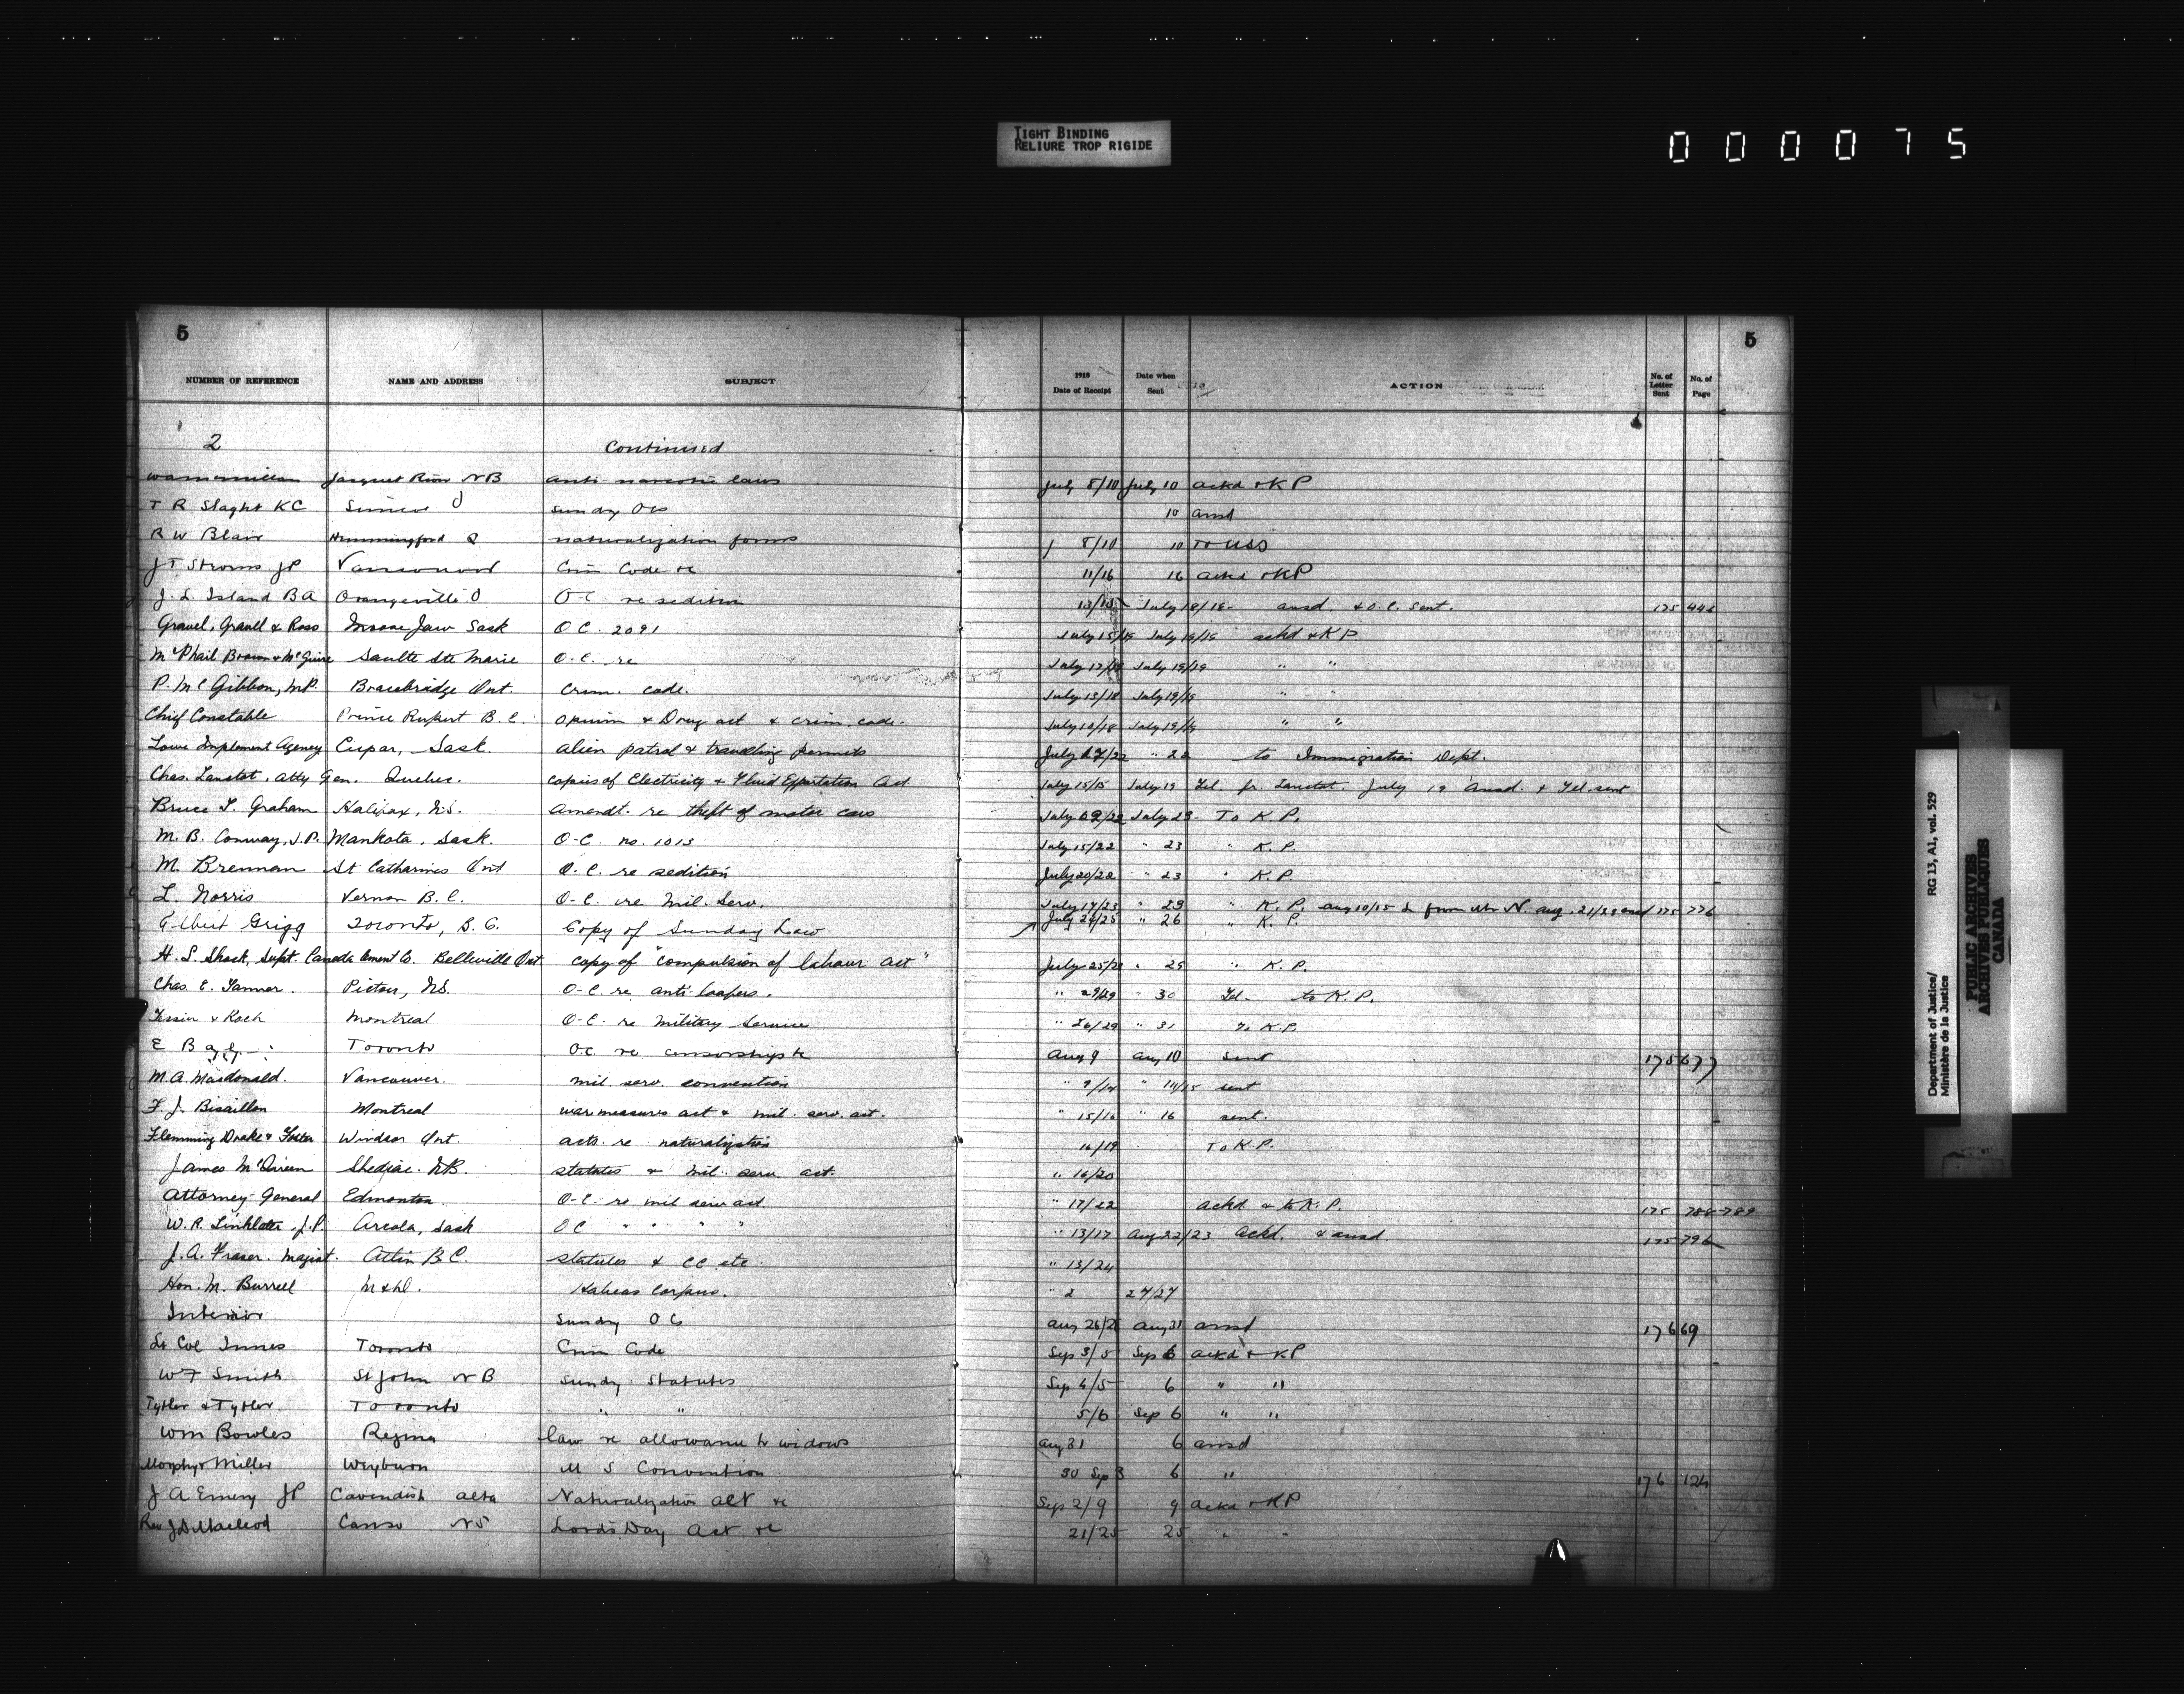 TIGHT BINDING
RELIURE TROP RIGIDE
000075
5 5
NUMBER OF REFERENCE NAME AND ADDRESS SUBJECT 1918 Date of Receipt Date when Sent ACTION No. of Letter Sent No. of Page
2 Continued
Jacquet River NB anti narcotic laws July 8/10 July 10 ackd & KP
T R Slaght KC Simcoe sundry OCs 10 ansd
R W Blair Hemmingford Q naturalization forms 8/10 10 To USS
J T Stroms JP Vancouver Crim Code re 11/16 16 ackd & KP
J. L. Island BA Orangeville O O.C. re sedition 13/15 July 18/18- ansd. & O.C. sent. 175 446
Gravel, Gravell & Ross Moose Jaw Sask O C. 2091 July 15/19 July 19/19 ackd & KP
McPhail Brown & McGuire Saulte Ste Marie O.C. re July 17/19 July 19/19 " "
P. McGibbon, M.P. Bracebridge Ont. Crim. code. July 13/18 July 19/19 " "
Chief Constable Prince Rupert B.C. Opium & Drug act & crim. code. July 10/18 July 19/19 " "
Lowe Implement Agency Cupar, Sask. alien patrol & travelling permits July 17/22 " 22 to Immigration Dept.
Chas. Lanctot, Atty Gen. Quebec. copies of Electricity & Fluid Exportation Act July 15/15 July 19 Tel. fr. Lanctot. July 19 Ansd. & Tel. sent
Bruce T. Graham Halifax, N.S. Amendt. re theft of motor cars July 19/22 July 23- To K.P.
M. B. Conway, J.P. Mankota, Sask. O-C. no. 1013 July 15/22 " 23 " K.P.
M. Brennan St Catharines Ont O.C. re sedition July 20/22 " 23 " K.P.
L. Norris Vernon B.C. O-C. re Mil. Serv. July 17/23 " 23 " K.P. Aug 10/15 L from Mr N. Aug. 21/23 ansd 175 776
Albert Grigg Toronto, B.C. Copy of Sunday Law July 24/25 " 26 " K.P.
H. S. Shock, Supt. Canada Cement Co. Belleville Ont. copy of "Compulsion of labour Act" July 25/29 " 29 " K.P.
Chas. E. Tanner. Pictou, N.S. O-C. re anti-loafers. " 29/29 " 30 Tel- to K.P.
Tessin & Koch Montreal O-C. re Military Service " 26/29 " 31 To K.P.
E B Toronto O.C. re censorship Aug 9 Aug 10 sent 175 677
M.A. Macdonald. Vancouver. mil. serv. convention " 9/14 " 14/15 sent
F. J. Bisaillon Montreal war measures act & mil. serv. act. " 15/16 " 16 sent.
Flemming Drake & Foster Windsor Ont. acts re naturalization 16/19 To K.P.
James McQueen Shediac. N.B. statutes & mil. serv. act. " 16/20
Attorney General Edmonton. O-C. re mil serv act " 17/22 ackd & to K.P. 175 788-789
W. R. Linklater J.P. Arcola, Sask OC " " " " " 13/17 Aug 22/23 ackd. & ansd. 175 796
J.A. Fraser. Magist. Atlin B.C. statutes & CC etc. " 13/24
Hon. M. Burrell Habeas Corpus. " 2 24/27
Interior sundry OCs Aug 26/28 Aug 31 ansd 176 69
Lt Col Innes Toronto Crim Code Sep 3/5 Sep 6 ackd & KP
W F Smith St John NB Sundry Statutes Sep 4/5 6 " "
Tytler & Tytler Toronto " " 5/6 Sep 6 " "
Wm Bowles Regina law re allowance to widows Aug 31 6 ansd
Morphy & Miller Weyburn M S Convention 30 Sep 3 6 " 176 124
J A Emery JP Cavendish Alta Naturalization Act re Sep 2/9 9 ackd & KP
Rev J D Macleod Canso NS Lord's Day Act re 21/25 25 " "
Department of Justice/ RG 13, A1, vol. 529
Ministère de la Justice
PUBLIC ARCHIVES
ARCHIVES PUBLIQUES
CANADA